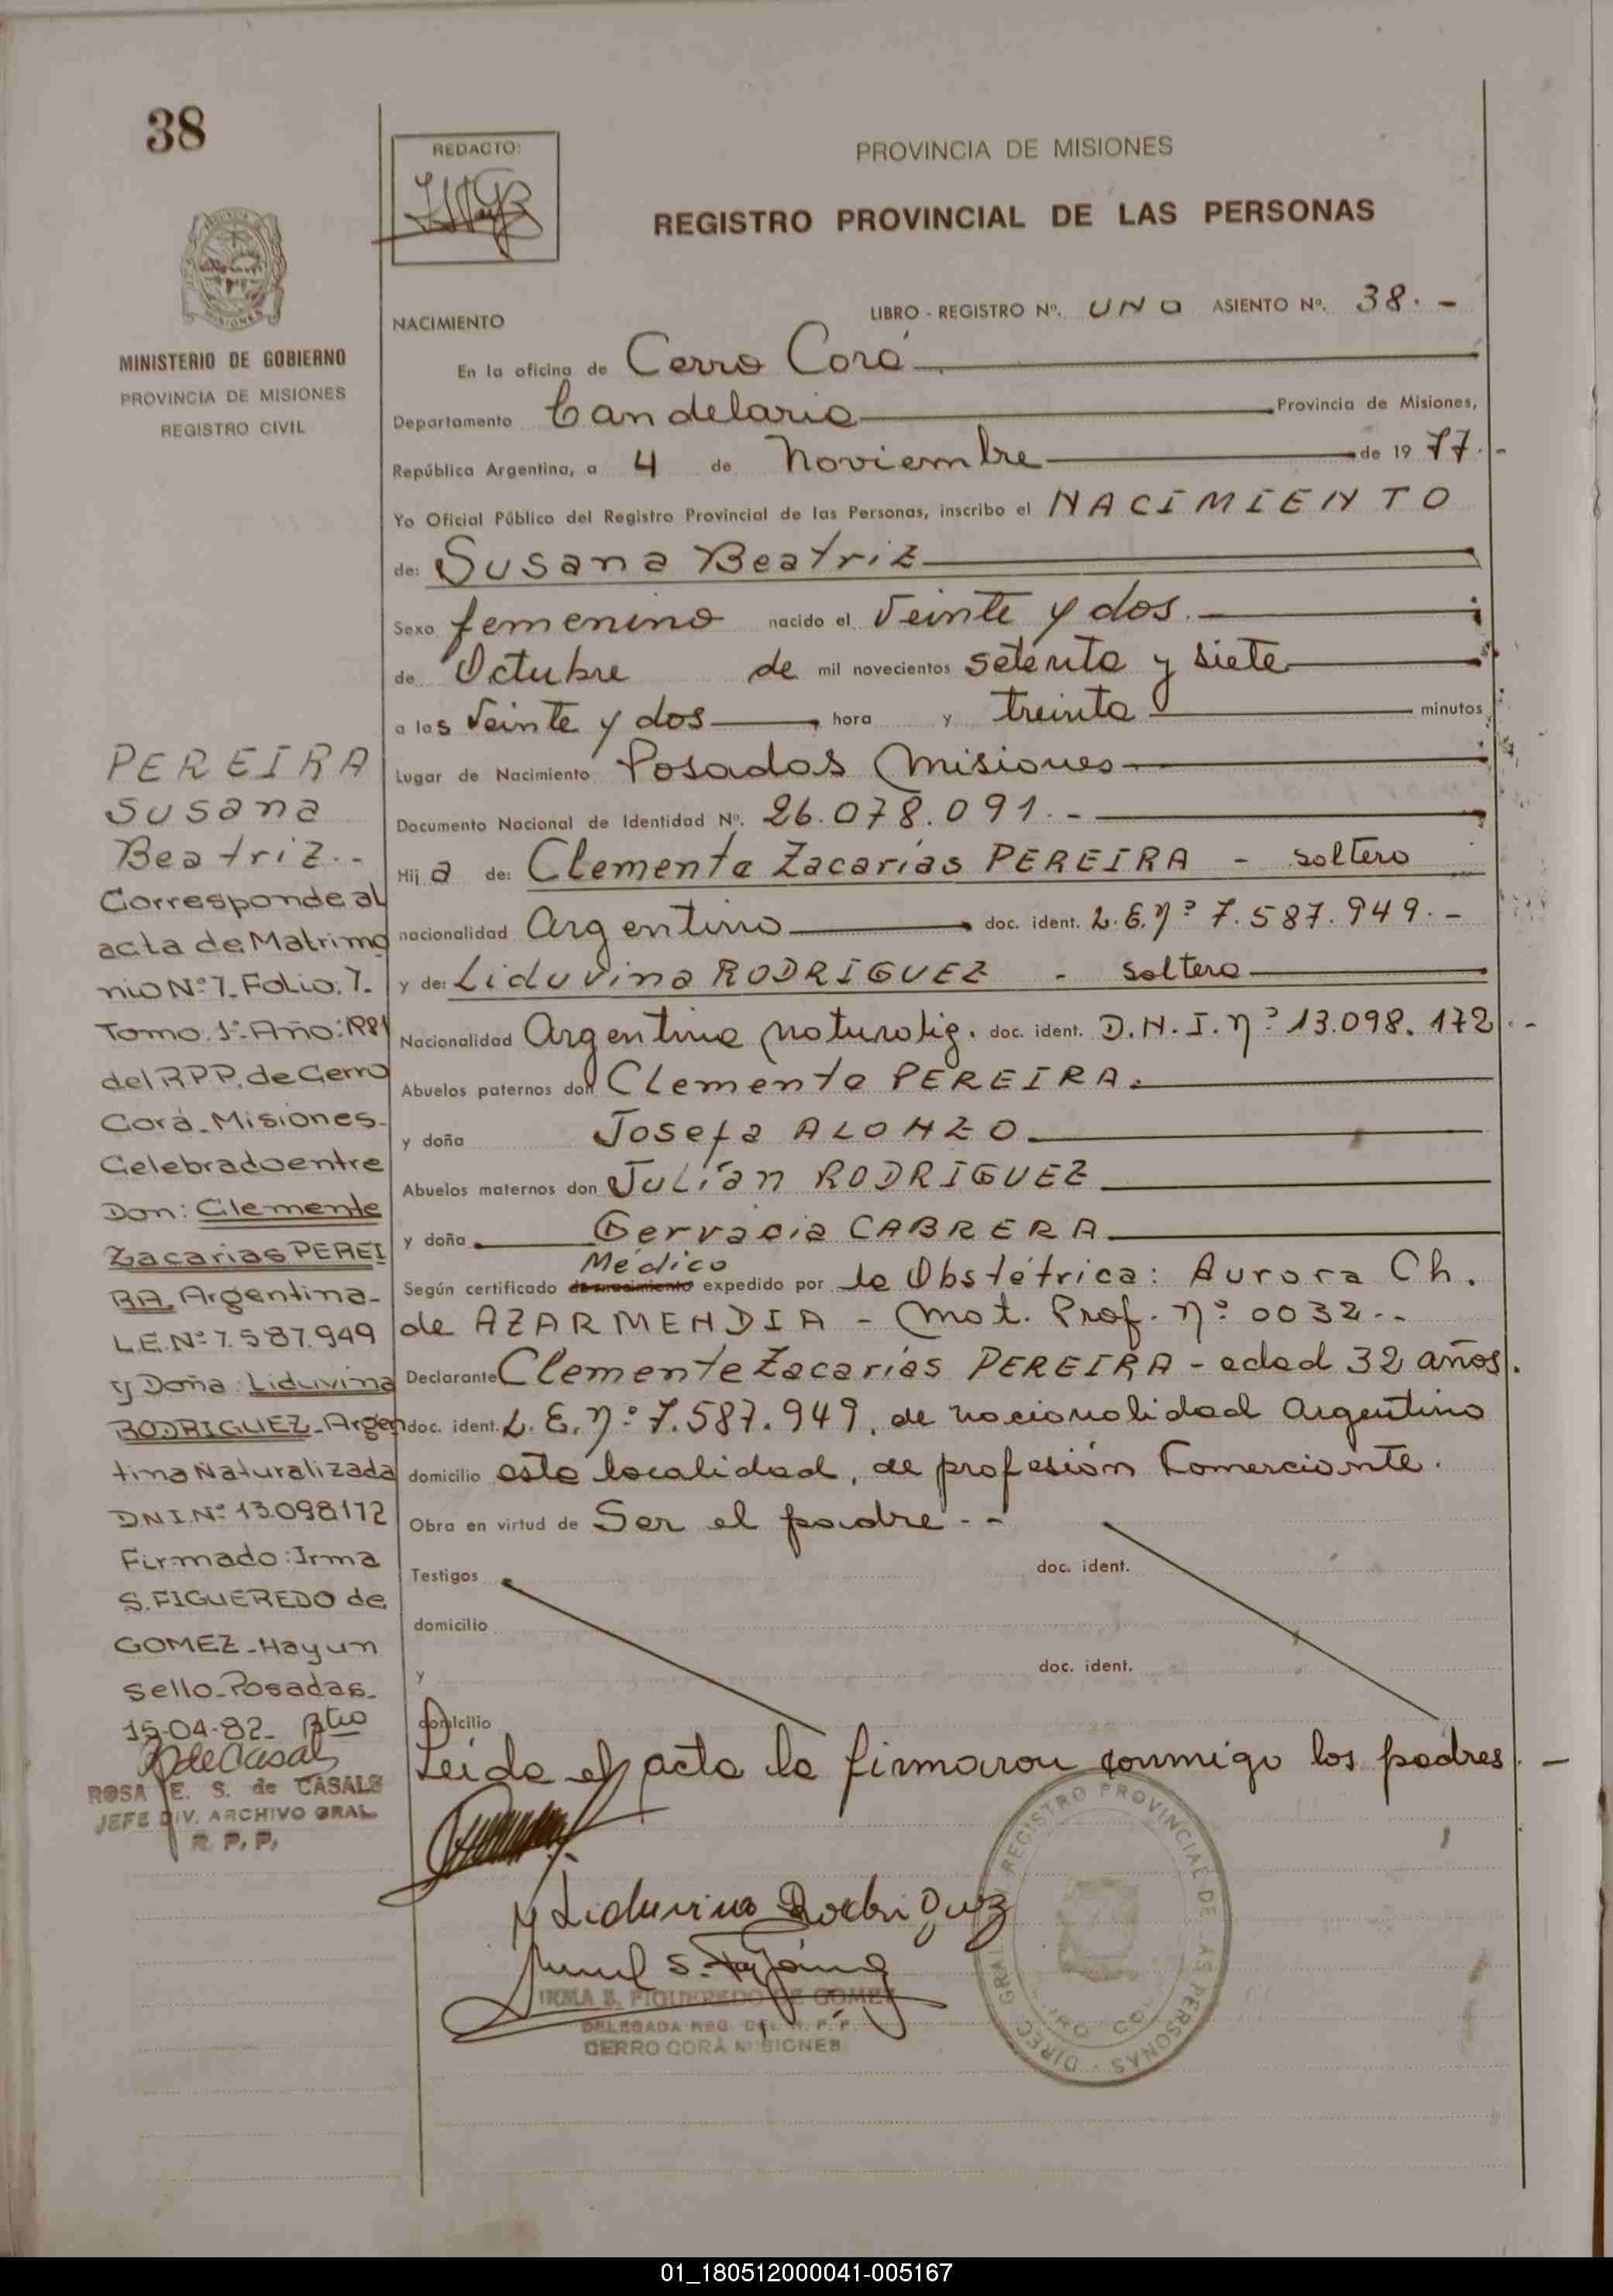 38
REDACTO:
PROVINCIA DE MISIONES
REGISTRO PROVINCIAL DE LAS PERSONAS
MINISTERIO DE GOBIERNO
PROVINCIA DE MISIONES
REGISTRO CIVIL
LIBRO - REGISTRO Nº. UNO ASIENTO Nº. 38.-
NACIMIENTO
En la oficina de Cerro Corá
Departamento Candelaria Provincia de Misiones,
República Argentina, a 4 de Noviembre de 1977.-
Yo Oficial Público del Registro Provincial de las Personas, inscribo el NACIMIENTO
de: Susana Beatriz
Sexo femenino nacido el Veinte y dos.-
de Octubre de mil novecientos setenta y siete
a las Veinte y dos hora y treinta minutos
Lugar de Nacimiento Posadas (Misiones
Documento Nacional de Identidad Nº. 26.078.091.-
Hija de: Clemente Zacarías PEREIRA - soltero
nacionalidad Argentino doc. ident. L.E.Nº 7.587.949.-
y de: Liduvina RODRIGUEZ - soltera
Nacionalidad Argentina naturaliz. doc. ident. D.N.I.Nº 13.098.172.-
Abuelos paternos don Clemente PEREIRA.
y doña Josefa ALONZO.
Abuelos maternos don Julián RODRIGUEZ
y doña Gervacia CABRERA
Médico
Según certificado de nacimiento expedido por la Obstétrica: Aurora Ch.
de AZARMENDIA - Mat. Prof. Nº 0032.-
Declarante Clemente Zacarías PEREIRA - edad 32 años.
doc. ident. L.E.Nº 7.587.949, de nacionalidad Argentino
domicilio esta localidad, de profesión Comerciante.
Obra en virtud de Ser el padre.-
Testigos doc. ident.
domicilio
y doc. ident.
domicilio
Leída el acta la firmaron conmigo los padres.-
Liduvina Rodriguez
IRMA S. FIGUEREDO DE GOMEZ
DELEGADA REG. DEL R. P. P.
CERRO CORÁ MISIONES
DIREC. GRAL. REGISTRO PROVINCIAL DE LAS PERSONAS
PEREIRA
Susana
Beatriz.-
Corresponde al
acta de Matrimo
nio Nº 7. Folio. 7.
Tomo. 1º. Año: 1981
del RPP. de Cerro
Corá. Misiones.
Celebrado entre
Don: Clemente
Zacarias PEREI
RA. Argentina-
L.E. Nº 7.587.949
y Doña: Liduvina
RODRIGUEZ. Argen
tina Naturalizada
DNI. Nº 13.098172
Firmado: Irma
S. FIGUEREDO de
GOMEZ - Hay un
sello - Posadas.
15-04-82.
ROSA E. S. de CASALS
JEFE DIV. ARCHIVO GRAL.
R. P. P.
01_180512000041-005167